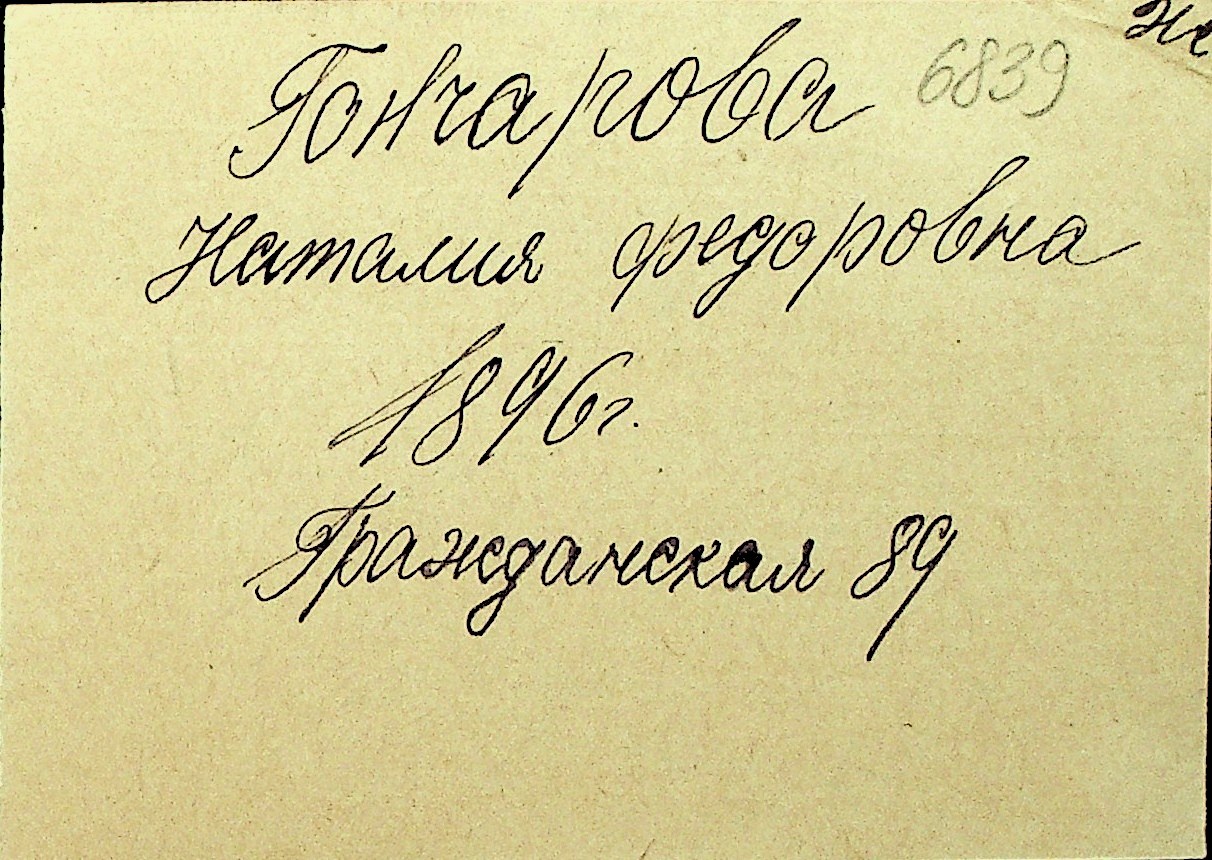 Гончарова 6839
Наталия федоровна
1896г.
Гражданская 89